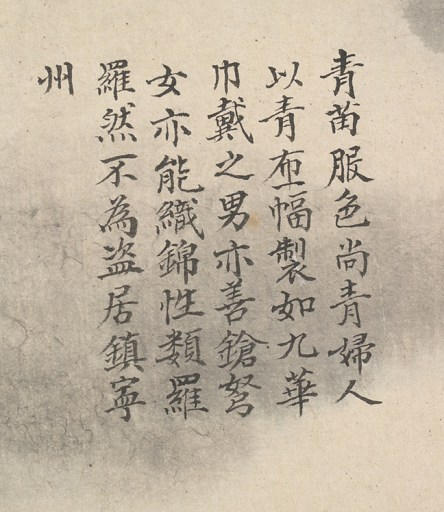 青苗服色尚青婦人
以青布幅製如九華
巾戴之男亦善鎗弩
女亦能織錦性類羅
羅然不為盗居鎮寧
州